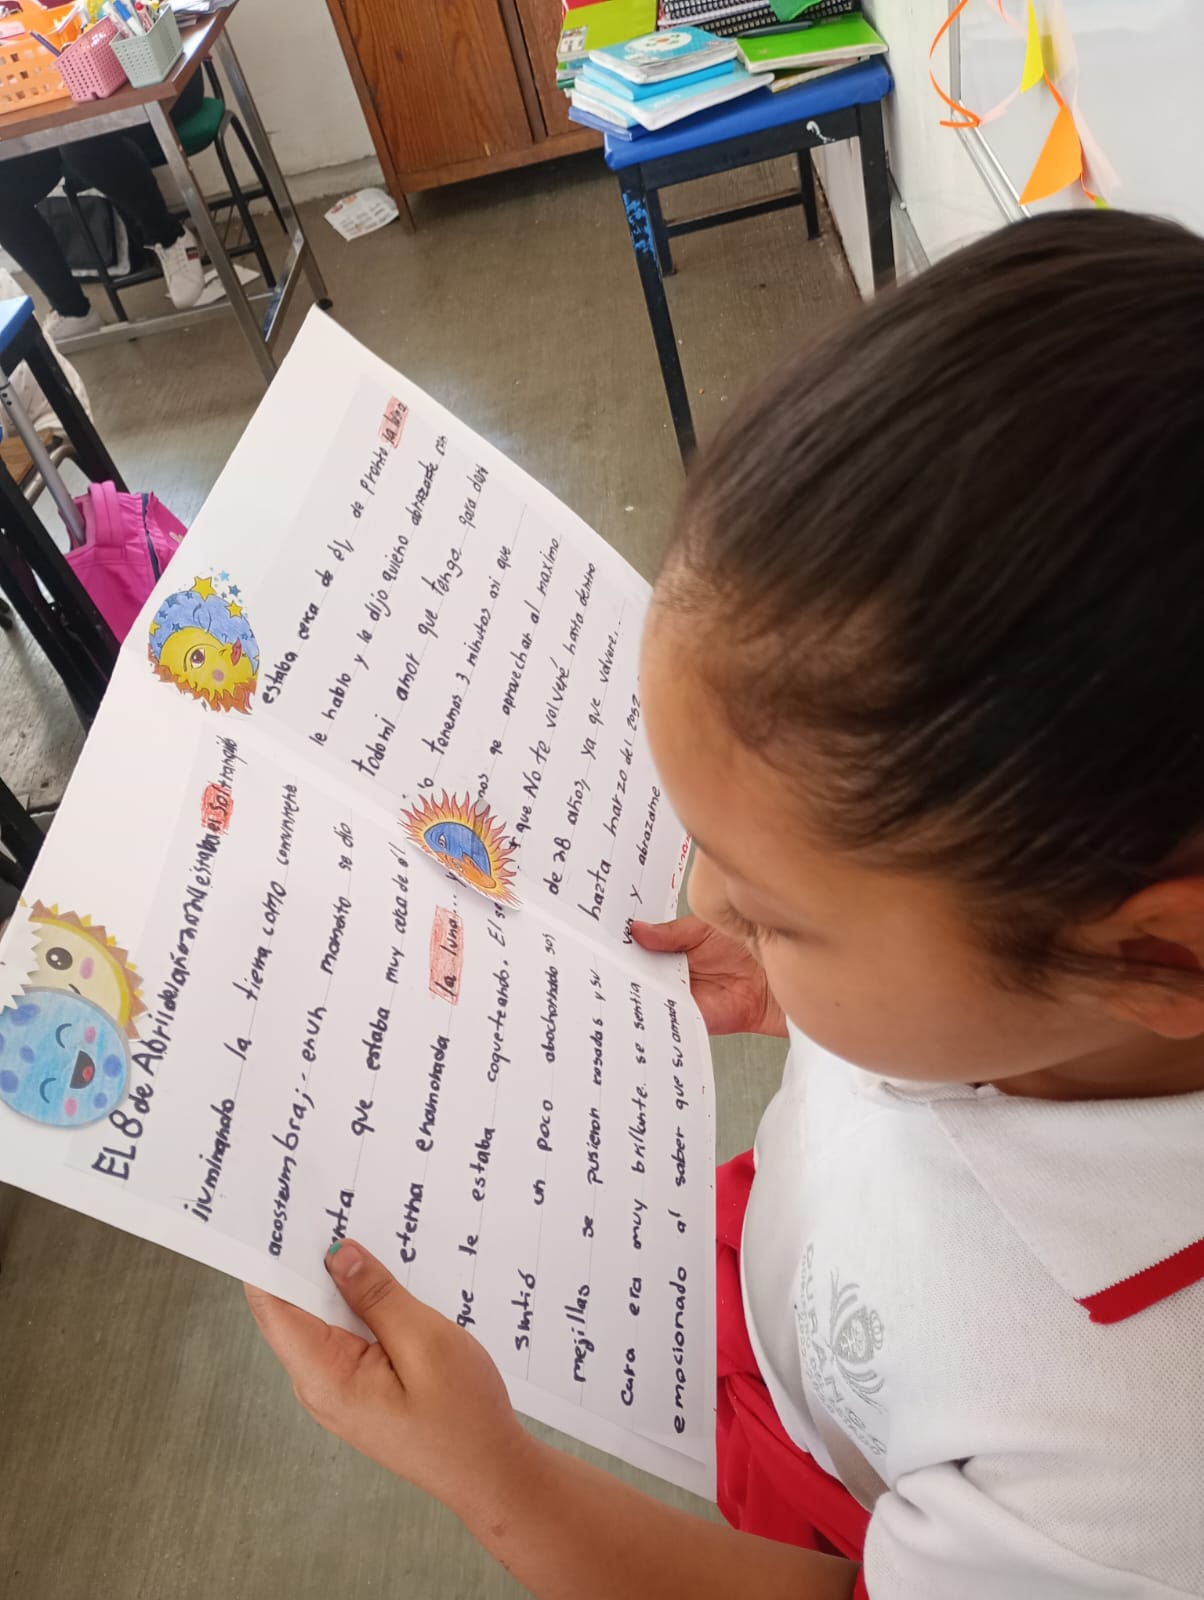 EL 8 de Abril del año 2024 estaba el sol tranquilo
iluminando la tierra como comunmente
acostumbra; en un momento se dio
que estaba muy cerca de él
eterna enamorada la luna...
que le estaba coqueteando. El
sintió un poco abochornado sus
mejillas se pusieron rosadas y su
cara era muy brillante. se sentía
emocionado al saber que su amada
estaba cerca de él, de pronto la luna
le hablo y le dijo quiero abrazarte con
todo mi amor que tengo para dar
tenemos 3 minutos asi que
aprovechar al maximo
que No te volveré hasta dentro
de 28 años ya que volveré...
hazta marzo del 2052
ven y abrazame
DURANGO